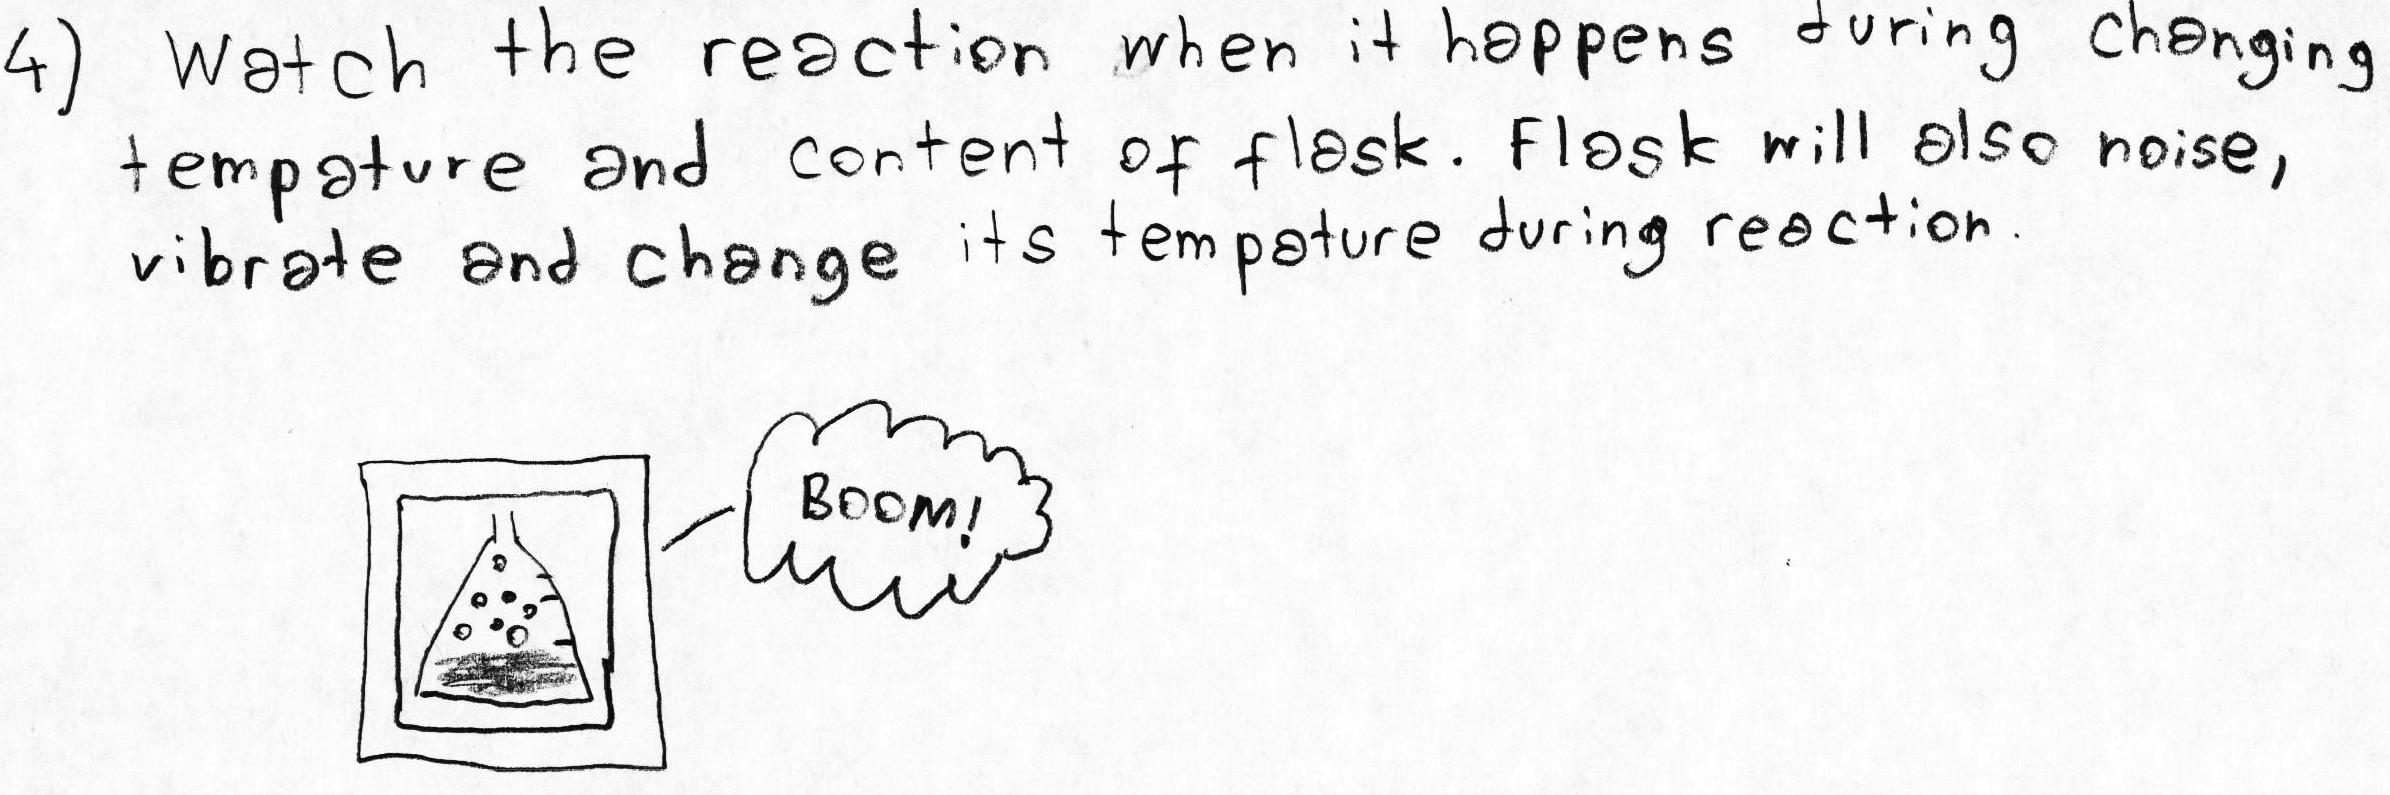 4) Watch the reaction when it happens during changing
tempature and content of flask. Flask will also noise,
vibrate and change its tempature during reaction.
BOOM!